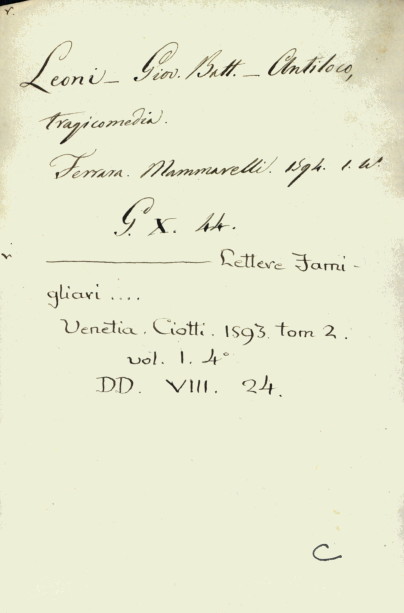 r.
Leoni – Giov. Batt. – Antiloco,
tragicomedia.
Ferrara. Mammarelli. 1594. 1.
G. X. 44.
r. ——— Lettere Fami-
gliari ....
Venetia. Ciotti. 1593. tom 2.
vol. 1. 4°
DD. VIII. 24.
C